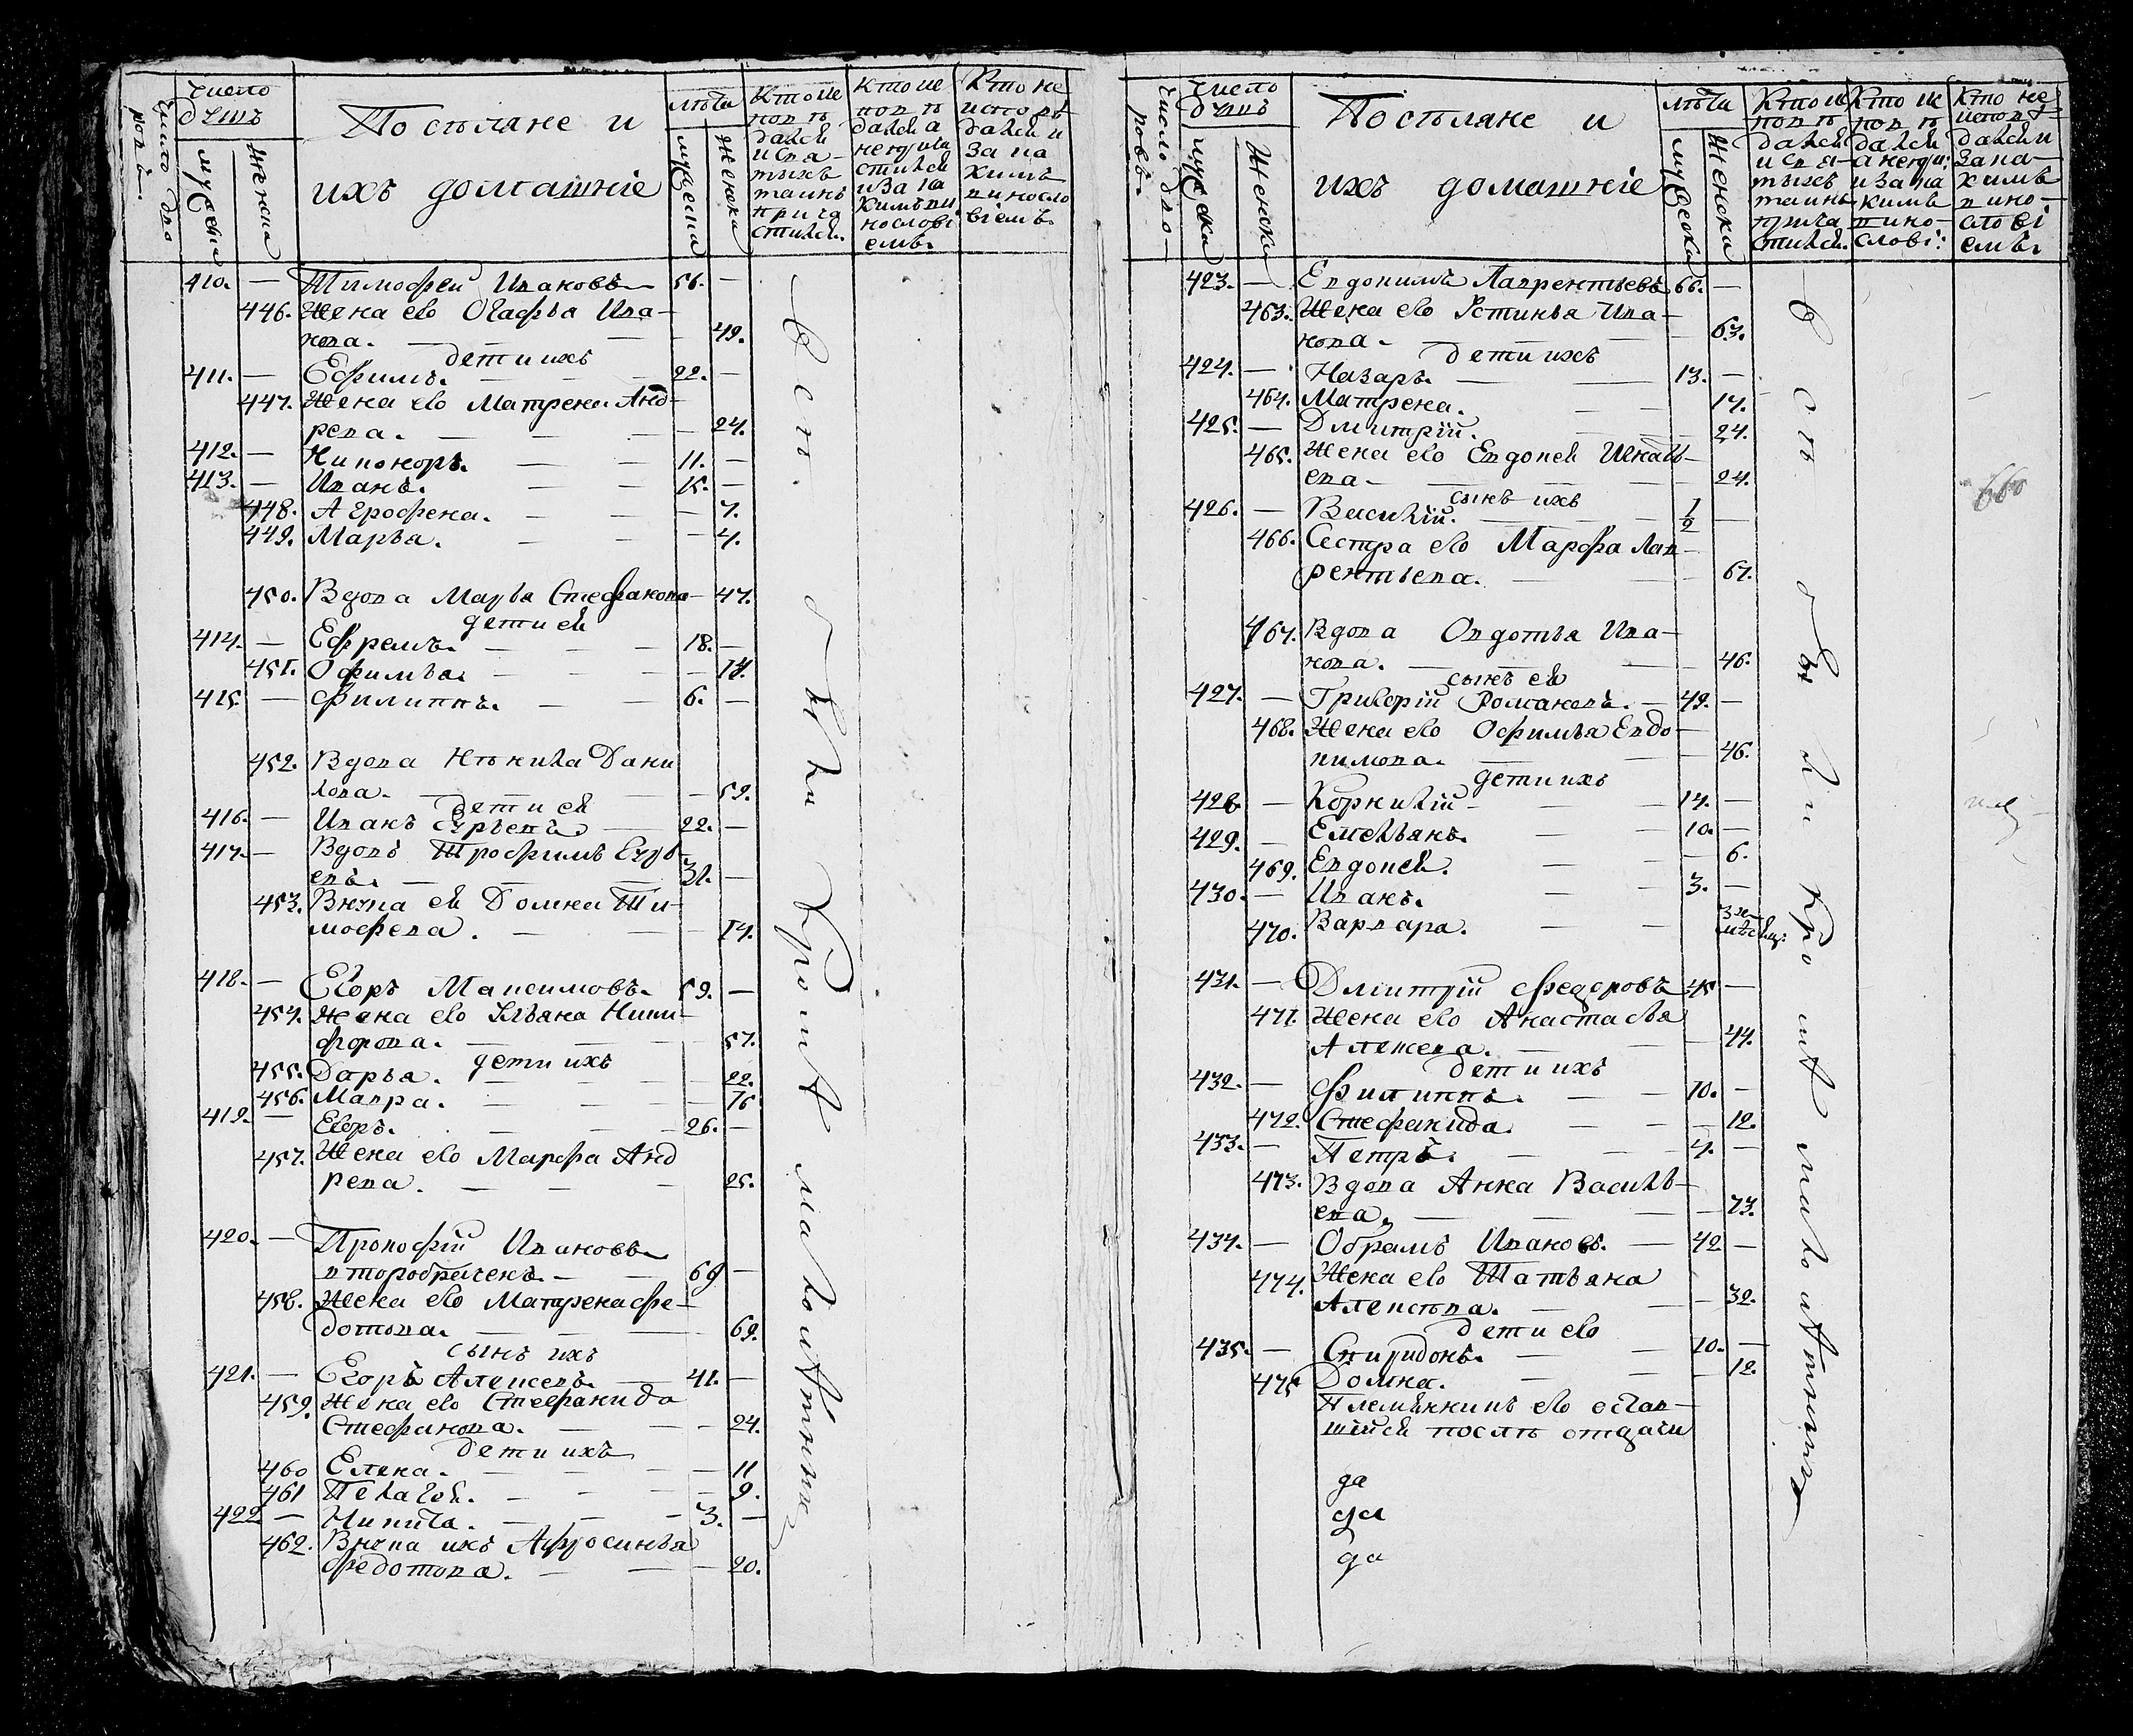 Число дво
ровъ.
число
душъ
мужеска
женска
Посѣляне и
ихъ домашніе
лѣта
мужеска
женска
Кто ис
повѣ
дался
и свя-
тыхъ
таинъ
прича
стился.
Кто ис
повѣ
дался а
непріча
стился
и за ка
кимъ ви
нослові
емъ.
Кто не
исповѣ
дался и
за ка
кимъ
винносло
віемъ.
410. — Тимофей Ивановъ — 56. —
446. Жена ево Огафья Ива-
нова. — 49.
дети ихъ
411. — Ефимъ. — 22. —
447. Жена ево Матрена Анд-
реева. — 24.
412. — Никоноръ. — 11. —
413. — Иванъ. — 15. —
448. Агрофена. — 7.
449. Марья. — 4.
450. Вдова Марья Стефанова — 47.
дети ей
414. — Ефремъ. — 18. —
451. Офимья. — 14.
415. — Филиппъ. — 6. —
452. Вдова Дани
лова. — 59.
дети ей
416. — Иванъ Гурьевъ — 22. —
417. — Вдовъ Трофимъ Гурь-
евъ. — 31. —
453. Внука ей Домна Ти-
мофева. — 14.
418. — Егоръ Максимовъ. 59. —
454. Жена ево Ульяна Ники-
форова. — 57.
дети ихъ
455. Дарья. — 22.
456. Мавра. — 16
419. — Егоръ. — 26. —
457. Жена ево Марфа Анд
реева. — 25.
420. — Прокофій Ивановъ
второбраченъ. — 69 —
458. Жена ево Матрена Фе-
дотова. — 69.
сынъ ихъ
421. — Егоръ Алексевъ. — 41. —
459. Жена ево Стефанида
Стефанова. — 24.
дети ихъ
460 Елена. — 11
461 Пелагея. — 9.
422 — Никита. — 3. —
462. Внука ихъ Афросинья
Федотова. — 20.
Всѣ были кромѣ малолѣтних
Число дво-
ровъ.
число
душъ
мужеска
женска
Посѣляне и
ихъ домашніе
лѣта
мужеска
женска
Кто ис
повѣ
дался
и свя-
тыхъ
таинъ
прича
стился.
Кто ис
повѣ
дался
а непри:
и за ка
кимъ
вино-
слові:
Кто не
исповѣ-
дался и
за ка-
кимъ
вино-
слові
емъ.
423. — Евдокимъ Лаврентьевъ 66. —
463. Жена ево Устинья Ива-
нова. — 63.
дети ихъ
424. — Назаръ. — 13. —
464. Матрена. — 17.
425. — Дмитрій. — 24.
465. Жена ево Евдокея
ева — 24.
сынъ ихъ
426. — Василій. — 1/2 —
466. Сестра ево Марфа Лав-
рентьева. — 67.
467. Вдова Овдотья Ива-
нова. — 46.
сынъ ей
427. — Григорій Романовъ. — 49. —
468. Жена ево Офимья Евдо-
кимова. — 46.
дети ихъ
428. — Корнилій — 14. —
429. — Емельянъ. — 10. —
469. Евдокея. — 6.
430. — Иванъ. — 3. —
470. Варвара. — 3 хъ
мѣсяц:
431. — Дмитрій Федоровъ 45 —
471. Жена ево Анастасья
Алексева. — 44.
дети ихъ
432. — Филиппъ. — 10. —
472. Стефанида. — 12.
433. — Петръ. — 4. —
473. Вдова Анна Василь-
ева. — 73.
434. — Обрамъ Ивановъ. — 42 —
474. Жена ево Татьяна
Алексѣва. — 32.
дети ево
435. — Спиридонъ. — 10. —
475 Домна. — 12.
Племянникъ ево остав-
шійся послѣ отдачи
да
да
да
Всѣ были кромѣ малолѣтних
660